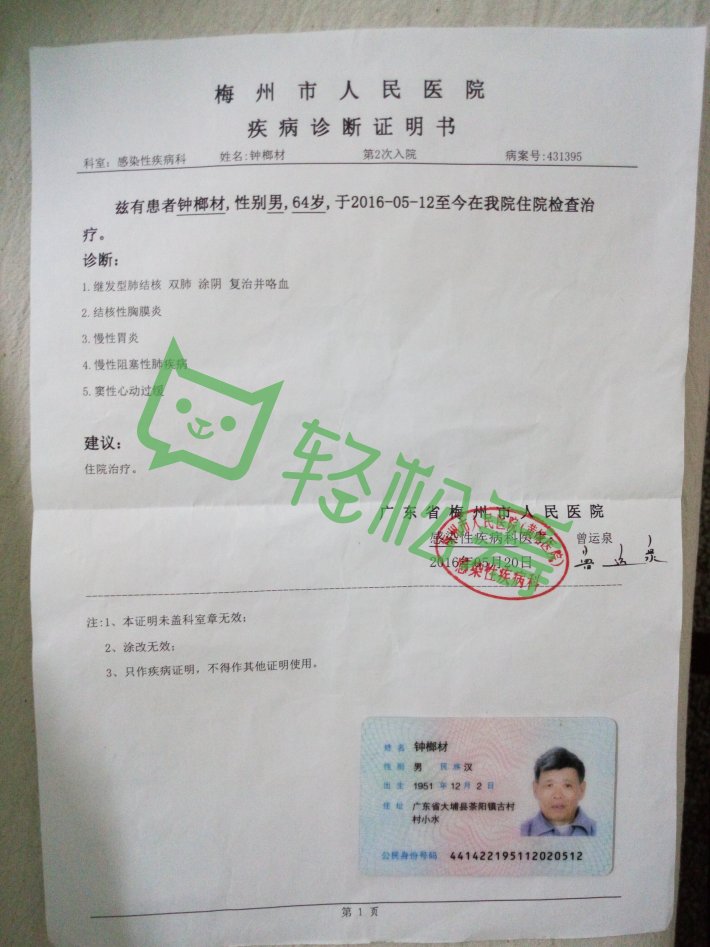 梅州市人民医院
疾病诊断证明书
科室：感染性疾病科 姓名:钟榔材 第2次入院 病案号:431395
兹有患者钟榔材,性别男,64岁,于2016-05-12至今在我院住院检查治
疗。
诊断:
1.继发型肺结核 双肺 涂阴 复治并咯血
2.结核性胸膜炎
3.慢性胃炎
4.慢性阻塞性肺疾病
5.窦性心动过缓
建议:
住院治疗。
轻松筹
广东省梅州市人民医院
感染性疾病科医生: 曾运泉
曾运泉
2016年05月20日
梅州市人民医院(黄塘医院)
感染性疾病科
注:1、本证明未盖科室章无效;
2、涂改无效;
3、只作疾病证明，不得作其他证明使用。
姓名 钟榔材
性别 男 民族 汉
出生 1951 年 12 月 2 日
住址 广东省大埔县茶阳镇古村
村小水
公民身份号码 441422195112020512
第 1 页